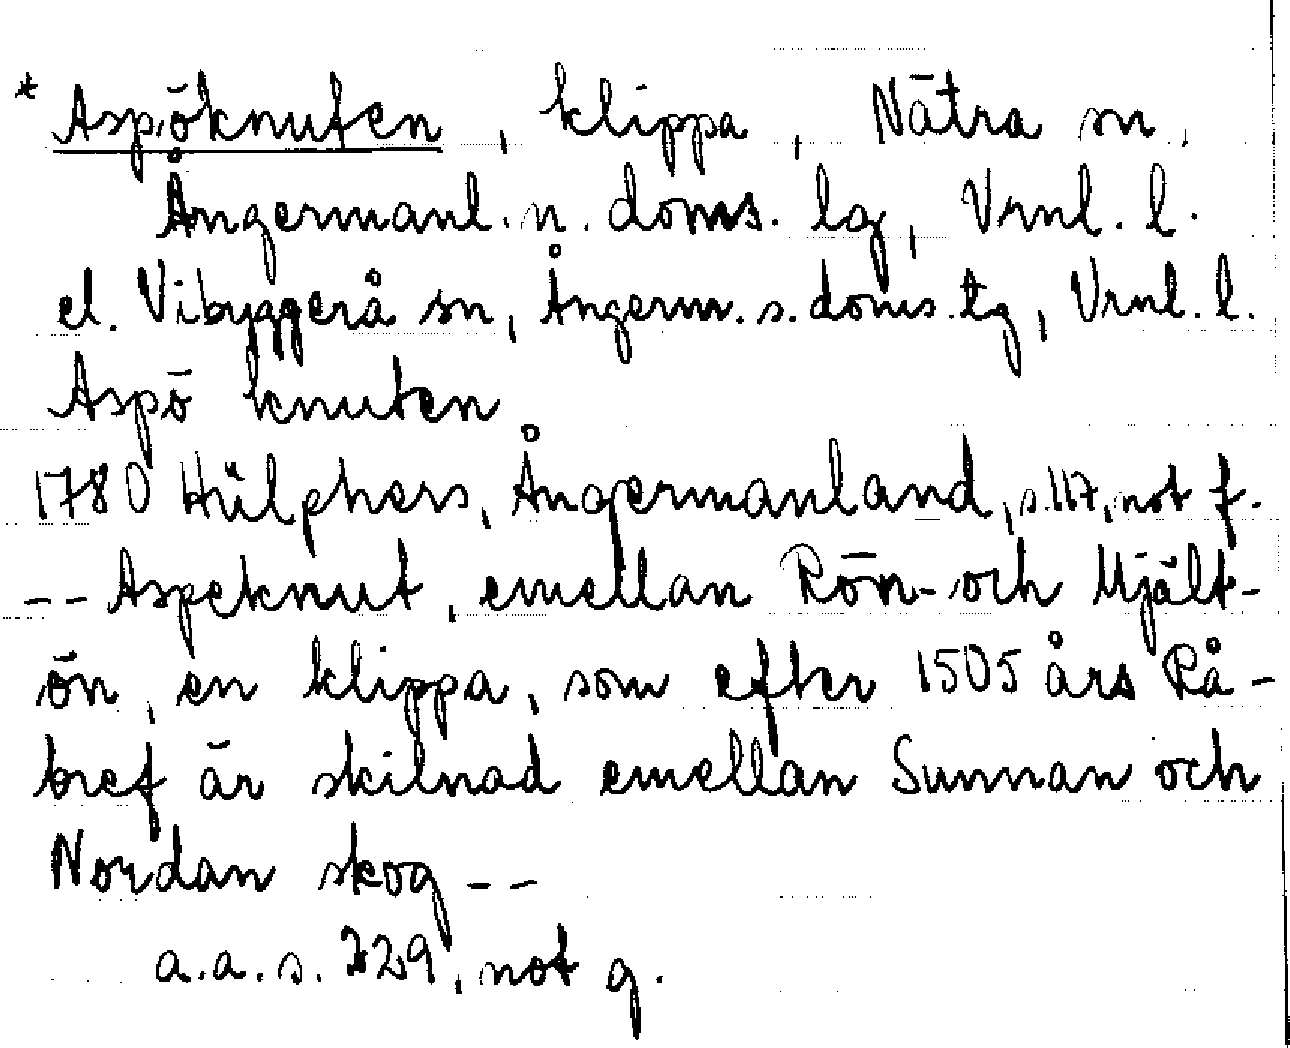 * Aspöknuten, klippa, Nätra sn,
Ångermanl. n. doms. lg, Vrnl. l.
el. Vibyggerå sn, Ångerm. s. doms. tg, Vrnl. l.
Aspö knuten
1780 Hülphers, Ångermanland, s. 117, not f.
-- Aspeknut, emellan Rön- och Mjält-
ön, en klippa, som efter 1505 års Rå-
bref är skilnad emellan Sunnan och
Nordan skog --
a.a. s. 229, not g.